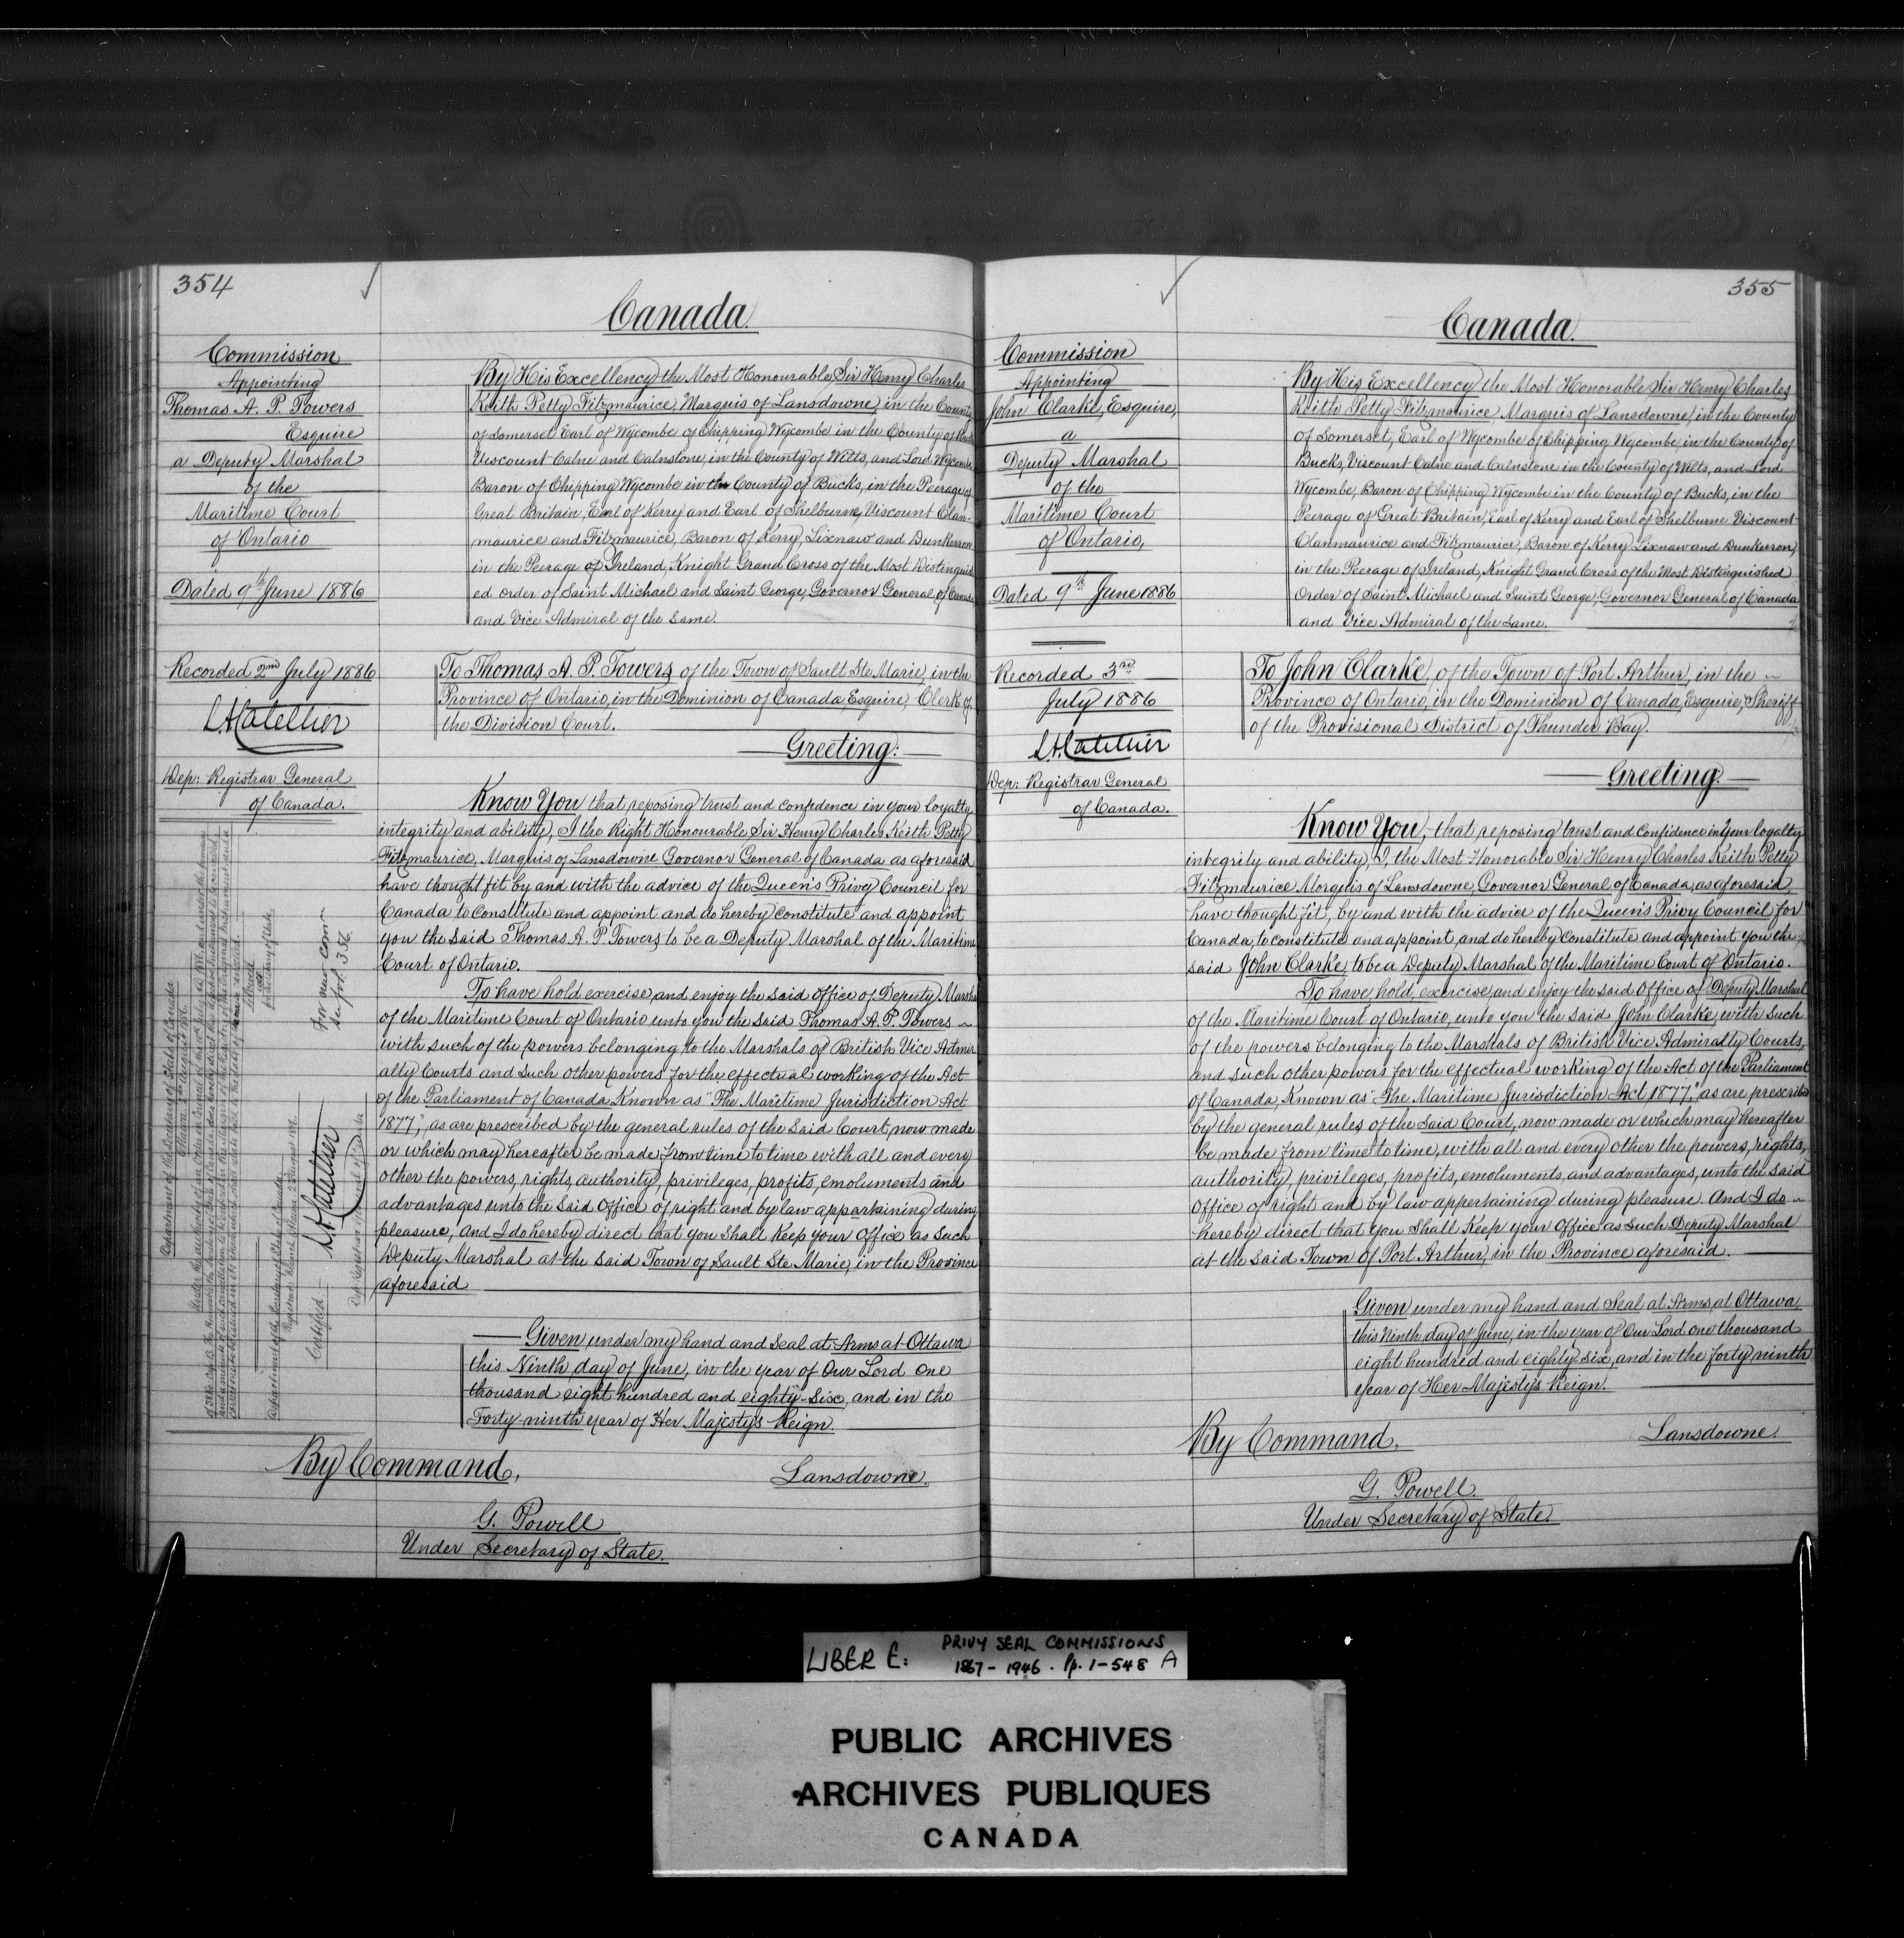 354
Canada.
Commission
Appointing
Thomas A. P. Towers
Esquire
a Deputy Marshal
of the
Maritime Court
of Ontario
Dated 9th June 1886
Recorded 2nd July 1886
L. A. Catellier
Dep: Registrar General
of Canada.
For new com:n
see fol. 356.
Department of the Secretary of State of Canada
Certified
L. A. Catellier
By His Excellency the Most Honourable Sir Henry Charles
Keith Petty Fitzmaurice, Marquis of Lansdowne, in the County
of Somerset Earl of Wycombe of Chipping Wycombe in the County of Bucks
Viscount Calne and Calnstone, in the County of Wilts, and Lord Wycombe
Baron of Chipping Wycombe in the County of Bucks, in the Peerage of
Great Britain, Earl of Kerry and Earl of Shelburne, Viscount Clan-
maurice and Fitzmaurice, Baron of Kerry, Lixnaw and Dunkerron
in the Peerage of Ireland, Knight Grand Cross of the Most Distinguish
ed Order of Saint Michael and Saint George, Governor General of Canada
and Vice Admiral of the same.
To Thomas A. P. Towers of the Town of Sault Ste Marie, in the
Province of Ontario, in the Dominion of Canada, Esquire, Clerk of
the Division Court.
Greeting:
Know You that reposing trust and confidence in your loyalty
integrity and ability, I the Right Honourable Sir Henry Charles Keith Petty
Fitzmaurice, Marquis of Lansdowne Governor General of Canada as aforesaid
have thought fit by and with the advice of the Queen's Privy Council for
Canada to constitute and appoint and do hereby constitute and appoint
you the said Thomas A. P. Towers to be a Deputy Marshal of the Maritime
Court of Ontario.
To have hold exercise and enjoy the said Office of Deputy Marshal
of the Maritime Court of Ontario unto you the said Thomas A. P. Towers
with such of the powers belonging to the Marshals of British Vice Admir
alty Courts and such other powers for the effectual working of the Act
of the Parliament of Canada Known as "The Maritime Jurisdiction Act
1877," as are prescribed by the general rules of the said Court, now made
or which may hereafter be made from time to time with all and every
other the powers, rights, authority, privileges, profits, emoluments and
advantages unto the said Office of right and by law appartaining during
pleasure, and I do hereby direct that you shall keep your office as such
Deputy Marshal at the said Town of Sault Ste Marie, in the Province
aforesaid
Given under my hand and Seal at Arms at Ottawa
this Ninth day of June, in the year of Our Lord One
thousand eight hundred and eighty-six, and in the
Forty-ninth year of Her Majesty's Reign.
By Command,
Lansdowne.
G. Powell
Under Secretary of State.
355
Canada.
Commission
Appointing
John Clarke, Esquire,
a
Deputy Marshal
of the
Maritime Court
of Ontario,
Dated 9th June 1886
Recorded 3rd
July 1886
L. A. Catellier
Dep: Registrar General
of Canada.
By His Excellency the Most Honorable Sir Henry Charles
Keith Petty Fitzmaurice, Marquis of Lansdowne, in the County
of Somerset, Earl of Wycombe of Chipping Wycombe, in the County of
Bucks, Viscount Calne and Calnstone in the County of Wilts, and Lord
Wycombe, Baron of Chipping Wycombe in the County of Bucks, in the
Peerage of Great Britain, Earl of Kerry and Earl of Shelburne Viscount
Clanmaurice and Fitzmaurice, Baron of Kerry Lixnaw and Dunkerron,
in the Peerage of Ireland, Knight Grand Cross of the Most Distinguished
Order of Saint Michael and Saint George, Governor General of Canada
and Vice Admiral of the same.
To John Clarke, of the Town of Port Arthur, in the
Province of Ontario, in the Dominion of Canada, Esquire, Sheriff
of the Provisional District of Thunder Bay.
Greeting:
Know You, that reposing trust and confidence in your loyalty
integrity and ability, I, the Most Honorable Sir Henry Charles Keith Petty
Fitzmaurice Marquis of Lansdowne, Governor General of Canada, as aforesaid,
have thought fit, by and with the advice of the Queen's Privy Council for
Canada, to constitute and appoint, and do hereby constitute and appoint you the
said John Clarke, to be a Deputy Marshal of the Maritime Court of Ontario.
To have, hold, exercise, and enjoy the said Office of Deputy Marshal
of the Maritime Court of Ontario, unto you the said John Clarke, with such
of the powers belonging to the Marshals of British Vice Admiralty Courts,
and such other powers for the effectual working of the Act of the Parliament
of Canada, Known as "The Maritime Jurisdiction Act 1877," as are prescribed
by the general rules of the said Court, now made or which may hereafter
be made from time to time, with all and every other the powers, rights,
authority, privileges, profits, emoluments, and advantages, unto the said
Office of right and by law appertaining during pleasure. And I do
hereby direct that you shall keep your Office as such Deputy Marshal
at the said Town of Port Arthur, in the Province aforesaid.
Given under my hand and Seal at Arms, at Ottawa,
this Ninth day of June, in the year of Our Lord one thousand
eight hundred and eighty six, and in the forty ninth
year of Her Majesty's Reign.
By Command,
Lansdowne.
G. Powell.
Under Secretary of State.
LIBER E: PRIVY SEAL COMMISSIONS
1867-1946. Pp. 1-548 A
PUBLIC ARCHIVES
ARCHIVES PUBLIQUES
CANADA